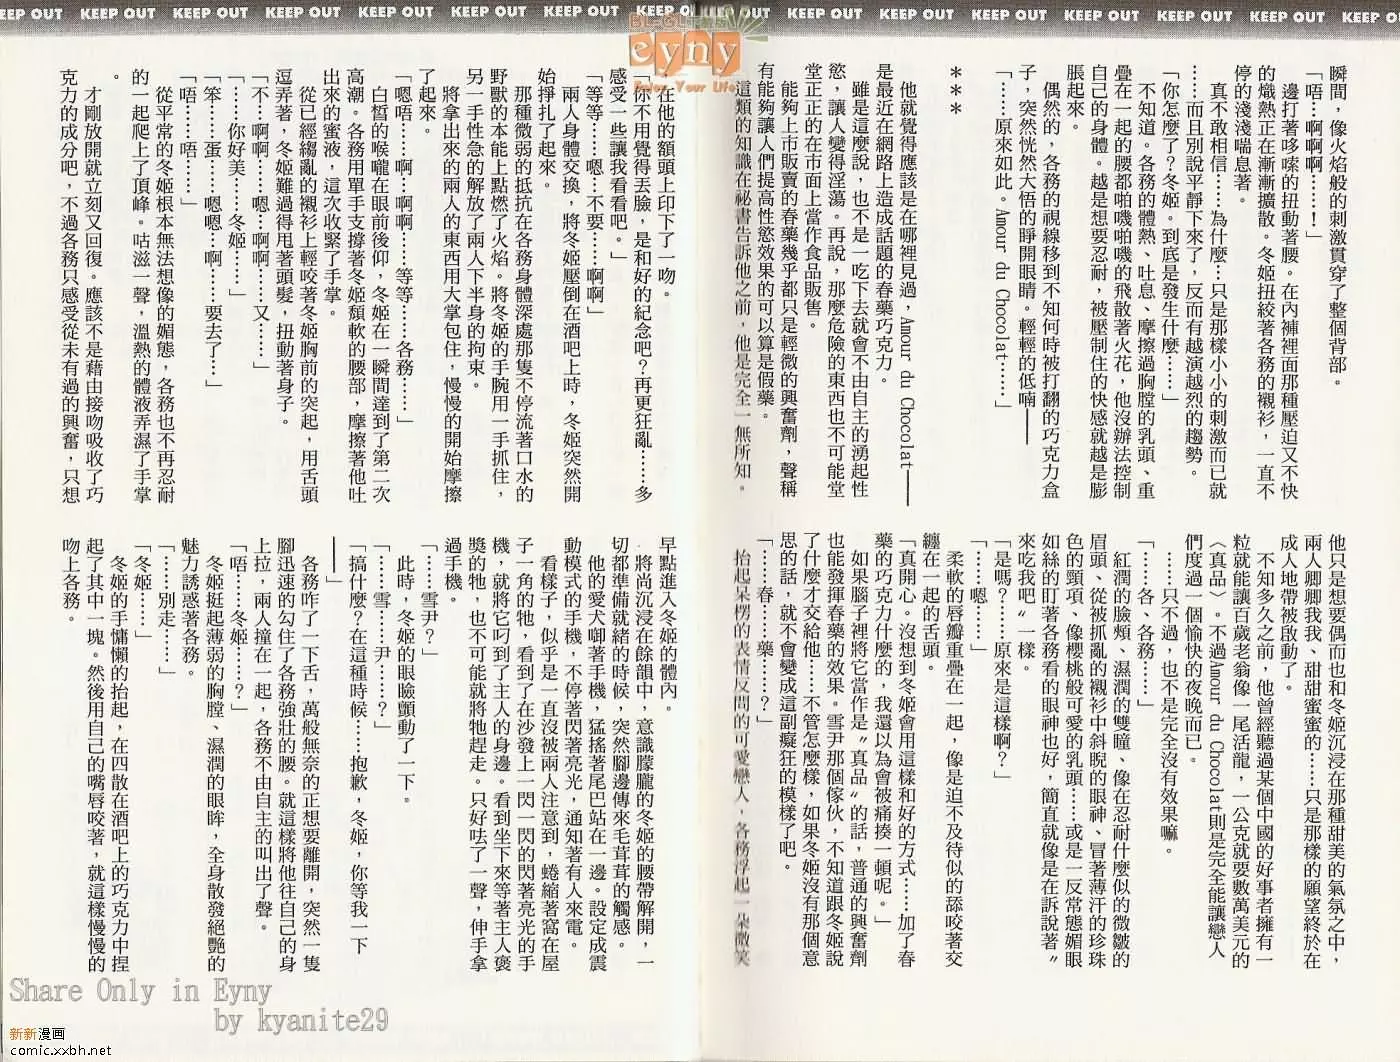 KEEP OUT KEEP OUT KEEP OUT KEEP OUT KEEP OUT KEEP OUT KEEP OUT KEEP OUT KEEP OUT KEEP OUT KEEP OUT KEEP OUT KEEP OUT KEEP OUT KEEP OUT
BL-GL
eyny
Enjoy Your Life
瞬間，像火焰般的刺激貫穿了整個背部。
「唔……啊啊啊……！」
邊打著哆嗦的扭動著腰。在內褲裡面那種壓迫又不快
的熾熱正在漸漸擴散。冬姬扭絞著各務的襯衫，一直不
停的淺淺喘息著。
真不敢相信……為什麼…只是那樣小小的刺激而已就
……而且別說平靜下來了，反而有越演越烈的趨勢。
「你怎麼了？冬姬。到底是發生什麼……」
不知道。各務的體熱、吐息、摩擦過胸膛的乳頭、重
疊在一起的腰都啪嘰啪嘰的飛散著火花，他沒辦法控制
自己的身體。越是想要忍耐，被壓制住的快感就越是膨
脹起來。
偶然的，各務的視線移到不知何時被打翻的巧克力盒
子，突然恍然大悟的睜開眼睛。輕輕的低喃——
「……原來如此。Amour du Chocolat……」
＊＊＊
他就覺得應該是在哪裡見過，Amour du Chocolat——
是最近在網路上造成話題的春藥巧克力。
雖是這麼說，也不是一吃下去就會不由自主的湧起性
慾，讓人變得淫蕩。再說，那麼危險的東西也不可能堂
堂正正的在市面上當作食品販售。
能夠上市販賣的春藥幾乎都只是輕微的興奮劑，聲稱
有能夠讓人們提高性慾效果的可以算是假藥。
這類的知識在祕書告訴他之前，他是完全一無所知。
他只是想要偶而也和冬姬沉浸在那種甜美的氣氛之中，
兩人卿卿我我、甜甜蜜蜜的……只是那樣的願望終於在
成人地帶被啟動了。
不知多久之前，他曾經聽過某個中國的好事者擁有一
粒就能讓百歲老翁像一尾活龍，一公克就要數萬美元的
〈真品〉。不過Amour du Chocolat則是完全能讓戀人
們度過一個愉快的夜晚而已。
……只不過，也不是完全沒有效果嘛。
「……各、各務……」
紅潤的臉頰、濕潤的雙瞳、像在忍耐什麼似的微皺的
眉頭、從被抓亂的襯衫中斜睨的眼神、冒著薄汗的珍珠
色的頸項、像櫻桃般可愛的乳頭……或是一反常態媚眼
如絲的盯著各務看的眼神也好，簡直就像是在訴說著〝
來吃我吧〞一樣。
「是嗎？……原來是這樣啊？」
「嗯……」
柔軟的唇瓣重疊在一起，像是迫不及待似的舔咬著交
纏在一起的舌頭。
「真開心。沒想到冬姬會用這樣和好的方式……加了春
藥的巧克力什麼的，我還以為會被痛揍一頓呢。」
如果腦子裡將它當作是〝真品〞的話，普通的興奮劑
也能發揮春藥的效果。雪尹那個傢伙，不知道跟冬姬說
了什麼才交給他……不管怎麼樣，如果冬姬沒有那個意
思的話，就不會變成這副癡狂的模樣了吧。
「……春……藥……？」
抬起呆楞的表情反問的可愛戀人，各務浮起一朵微笑
在他的額頭上印下了一吻。
「你不用覺得丟臉，是和好的紀念吧？再更狂亂……多
感受一些讓我看看吧。」
「等等……嗯…不要……啊啊」
兩人身體交換，將冬姬壓倒在酒吧上時，冬姬突然開
始掙扎了起來。
那種微弱的抵抗在各務身體深處那隻不停流著口水的
野獸的本能上點燃了火焰。將冬姬的手腕用一手抓住，
另一手性急的解放了兩人下半身的拘束。
將拿出來的兩人的東西用大掌包住，慢慢的開始摩擦
了起來。
「嗯唔……啊……啊啊……等等……各務……」
白皙的喉嚨在眼前後仰，冬姬在一瞬間達到了第二次
高潮。各務用單手支撐著冬姬頹軟的腰部，摩擦著他吐
出來的蜜液，這次收緊了手掌。
從已經縐亂的襯衫上輕咬著冬姬胸前的突起，用舌頭
逗弄著，冬姬難過得甩著頭髮，扭動著身子。
「不…啊啊……嗯…啊啊……又……」
「……你好美……冬姬……」
「笨……蛋……嗯嗯…啊……要去了…」
「唔……唔……」
從平常的冬姬根本無法想像的媚態，各務也不再忍耐
的一起爬上了頂峰。咕滋一聲，溫熱的體液弄濕了手掌
。
才剛放開就立刻又回復。應該不是藉由接吻吸收了巧
克力的成分吧，不過各務只感受從未有過的興奮，只想
早點進入冬姬的體內。
將尚沉浸在餘韻中，意識朦朧的冬姬的腰帶解開，一
切都準備就緒的時候，突然腳邊傳來毛茸茸的觸感。
他的愛犬啣著手機，猛搖著尾巴站在一邊。設定成震
動模式的手機，不停著閃著亮光，通知著有人來電。
看樣子，似乎是一直沒被兩人注意到，蜷縮著窩在屋
子一角的牠，看到了在沙發上一閃一閃的閃著亮光的手
機，就將它叼到了主人的身邊。看到坐下來等著主人褒
獎的牠，也不可能就將牠趕走。只好呿了一聲，伸手拿
過手機。
「……雪尹？」
此時，冬姬的眼瞼顫動了一下。
「……雪……尹……？」
「搞什麼？在這種時候……抱歉，冬姬，你等我一下
——」
各務咋了一下舌，萬般無奈的正想要離開，突然一隻
腳迅速的勾住了各務強壯的腰。就這樣將他往自己的身
上拉，兩人撞在一起，各務不由自主的叫出了聲。
「唔……冬姬……？」
冬姬挺起薄弱的胸膛、濕潤的眼眸，全身散發絕艷的
魅力誘惑著各務。
「……別走……」
「冬姬……」
冬姬的手慵懶的抬起，在四散在酒吧上的巧克力中捏
起了其中一塊。然後用自己的嘴唇咬著，就這樣慢慢的
吻上各務。
Share Only in Eyny
by kyanite29
新新漫画
comic.xxbh.net